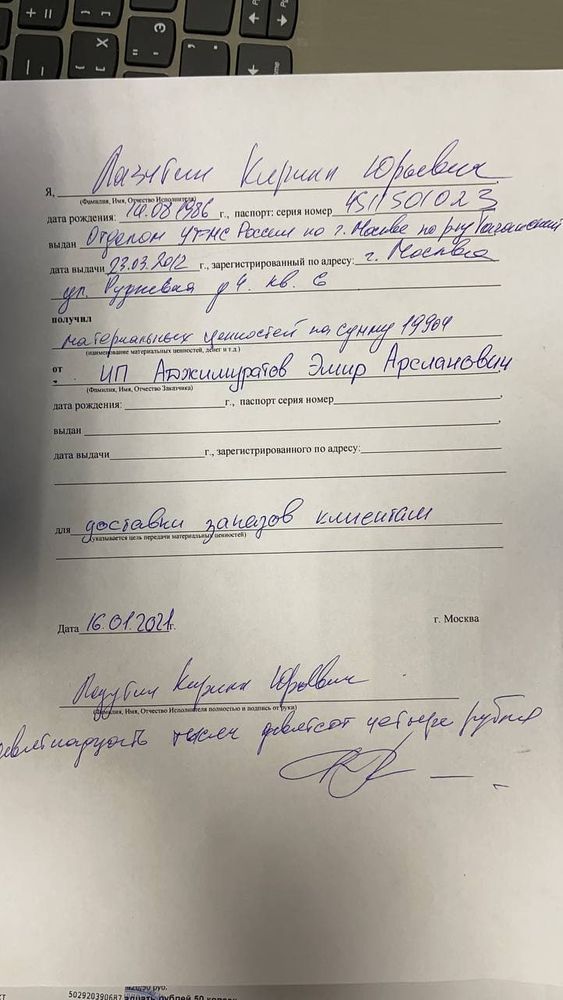 Я, Лазутин Кирилл Юрьевич
(Фамилия, Имя, Отчество Исполнителя)
дата рождения: 14.08 1986 г., паспорт: серия номер 4511501023
выдан Отделом УФМС России по г. Москве по р-ну Таганский
дата выдачи 23.03.2012 г., зарегистрированный по адресу: г. Москва
ул. д 4. кв. 6
получил
материальных ценностей на сумму 19904
(наименование материальных ценностей, денег и т.д.)
от ИП Аджимуратов Эмир Арсланович
(Фамилия, Имя, Отчество Заказчика)
дата рождения: г., паспорт серия номер ,
выдан ,
дата выдачи г., зарегистрированного по адресу:
для доставки заказов клиентам
(указывается цель передачи материальных ценностей)
Дата 16.01.2021г. г. Москва
Лазутин Кирилл Юрьевич
(Фамилия, Имя, Отчество Исполнителя полностью и подпись от руки)
девятнадцать тысяч девятсот четыре рубля
502920390687 50